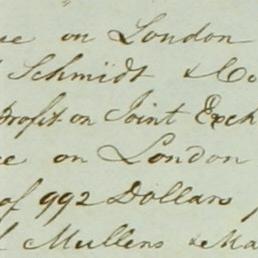 ce on London
Schmidt & Co
Profit on Joint Exch
ce on London
of 992 Dollars
Mullens & Ma